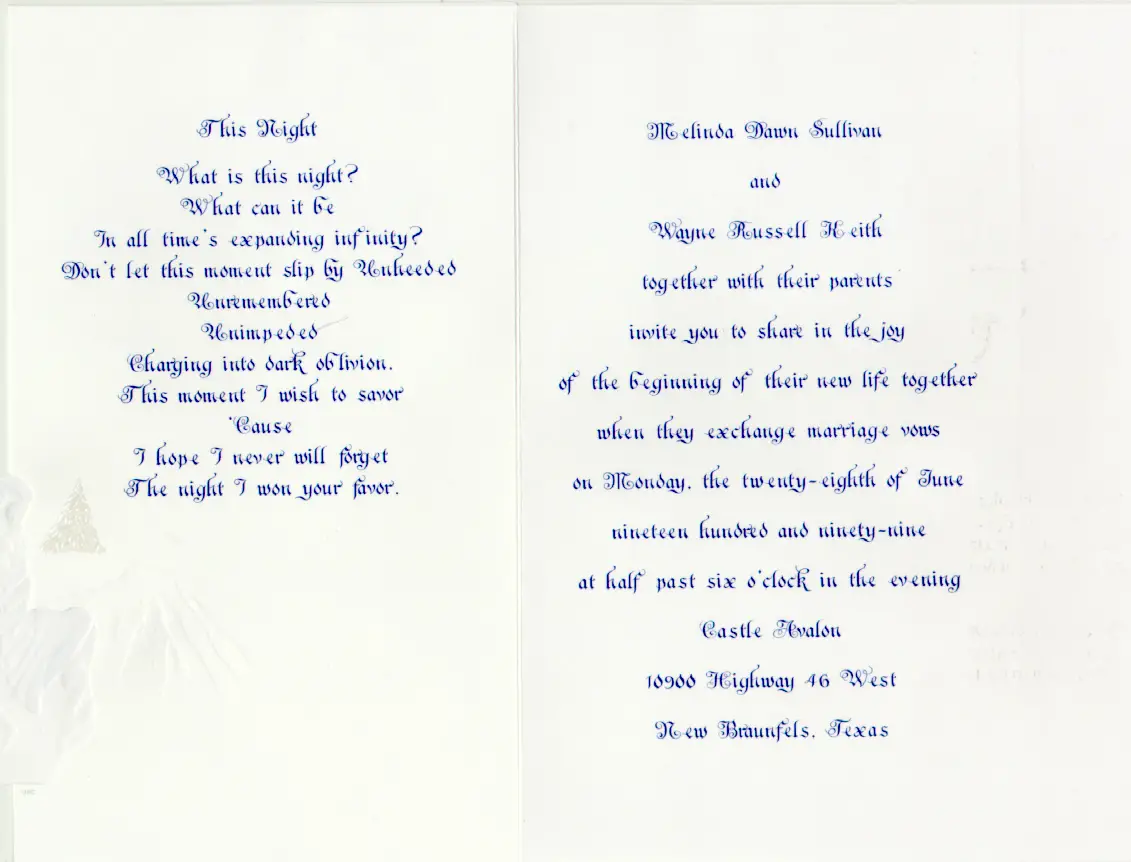 This Night
What is this night?
What can it be
In all time's expanding infinity?
Don't let this moment slip by Unheeded
Unremembered
Unimpeded
Charging into dark oblivion.
This moment I wish to savor
'Cause
I hope I never will forget
The night I won your favor.
Melinda Dawn Sullivan
and
Wayne Russell Keith
together with their parents
invite you to share in the joy
of the beginning of their new life together
when they exchange marriage vows
on Monday, the twenty-eighth of June
nineteen hundred and ninety-nine
at half past six o'clock in the evening
Castle Avalon
10900 Highway 46 West
New Braunfels, Texas